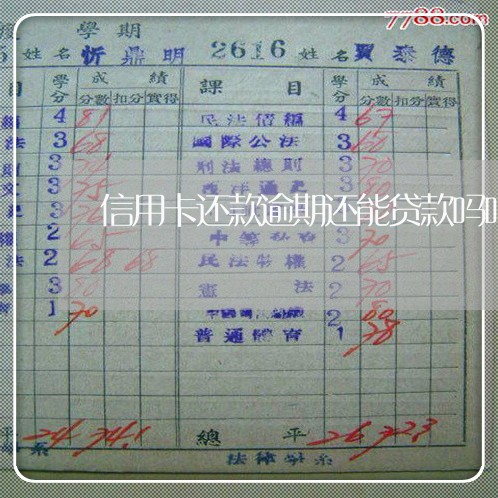 7788.com
學期
姓名忻鼎明 2616 姓名賈泰德
目 學分 成績 課目 學分 成績
分數 扣分 實得 分數 扣分 實得
4 81 民法債編 4 67
法 3 68 國際公法 3 60
3 刑法總則 3 70
3 75 3 80
信用卡还款逾期还能贷款吗
2 65 3 70
法 2 68 68 民法物權 2 65
3 80 憲法 2 70
1 70 2 80
普通體育 1 78
平 24 74.1 總平 26 72.3
系 法律學系